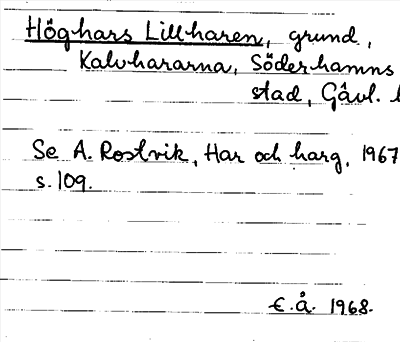 Höghars Lillharen, grund,
Kalvhararna, Söderhamns
stad, Gävl. l
Se A. Rostvik, Har och harg, 1967
s. 109.
E.Å. 1968.